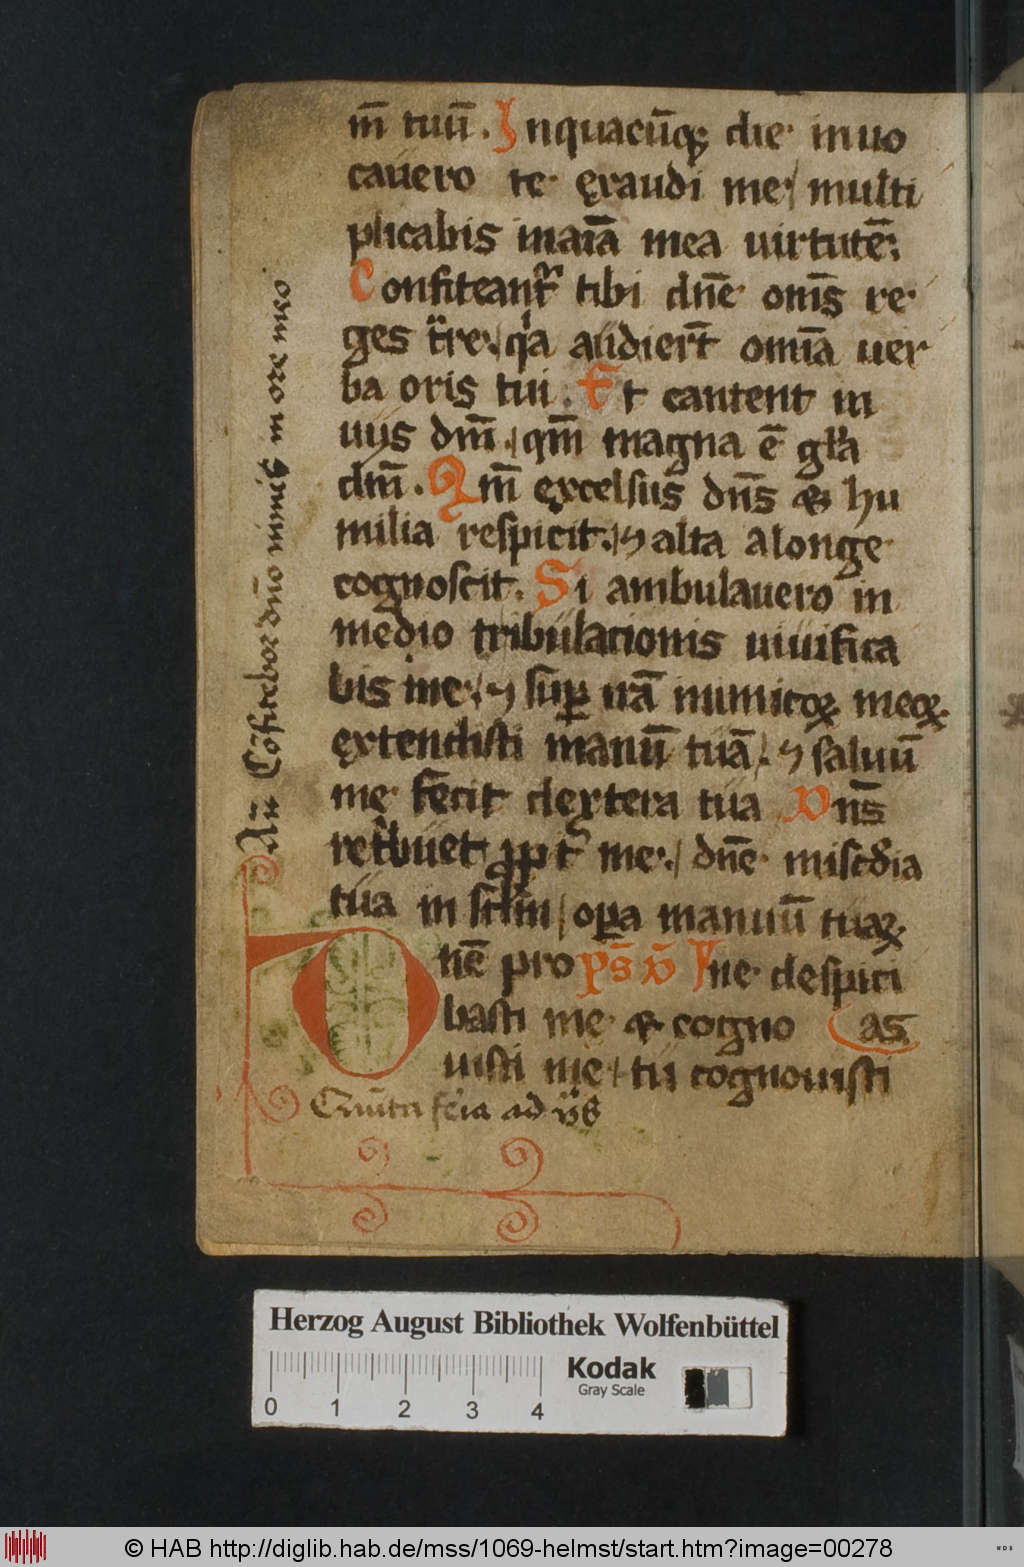 m̄ tuū. Inquacūqꝫ die inuo
cauero te ęxaudi me / multi
plicabis inaīa mea uirtutē;
Confiteant᷑ tibi dn̄e om̄s re
ges t̄re / qͥa audiert̄ om̄ia uer
ba oris tui. Et cantent in
uijs dn̄i / qm̄ magna ē gl̄a
dn̄i. Qm̄ excelsus dn̄s & hu
milia respicit / ⁊ alta alonge
cognoscit. Si ambulauero in
medio tribulacionis uiuifica
bis me / ⁊ suꝑ irā inimicoꝝ meoꝝ
extendisti manū tuā / ⁊ saluū
me fecit dextera tua Dn̄s
retͥbuet ꝓpt᷑ me / dn̄e mis̄cdia
tua in sc̄lm̄ / oꝑa manuū tuaꝝ
ne despici
as
Dn̄e pro
basti me & cogno
uisti me / tu cognouisti
Añ Cōfitebor dn̄o nimis in ore meo
Quīta feīa ad ūs
ps̄ D
Herzog August Bibliothek Wolfenbüttel
0 1 2 3 4
Kodak
Gray Scale
© HAB http://diglib.hab.de/mss/1069-helmst/start.htm?image=00278